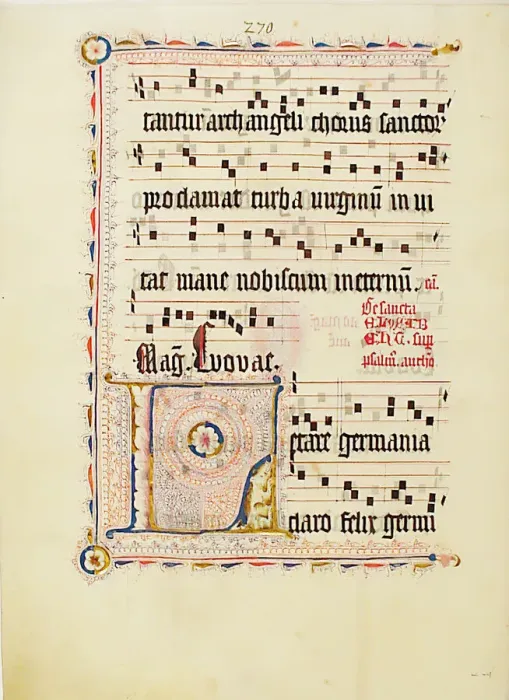 270
tantur archangeli chorus sanctor
proclamat turba virginū in vi
tac mane nobiscum ineternū. cā.
De sancta
psalm. anthō
Mag. Evovae.
L etare germania
claro felix germi